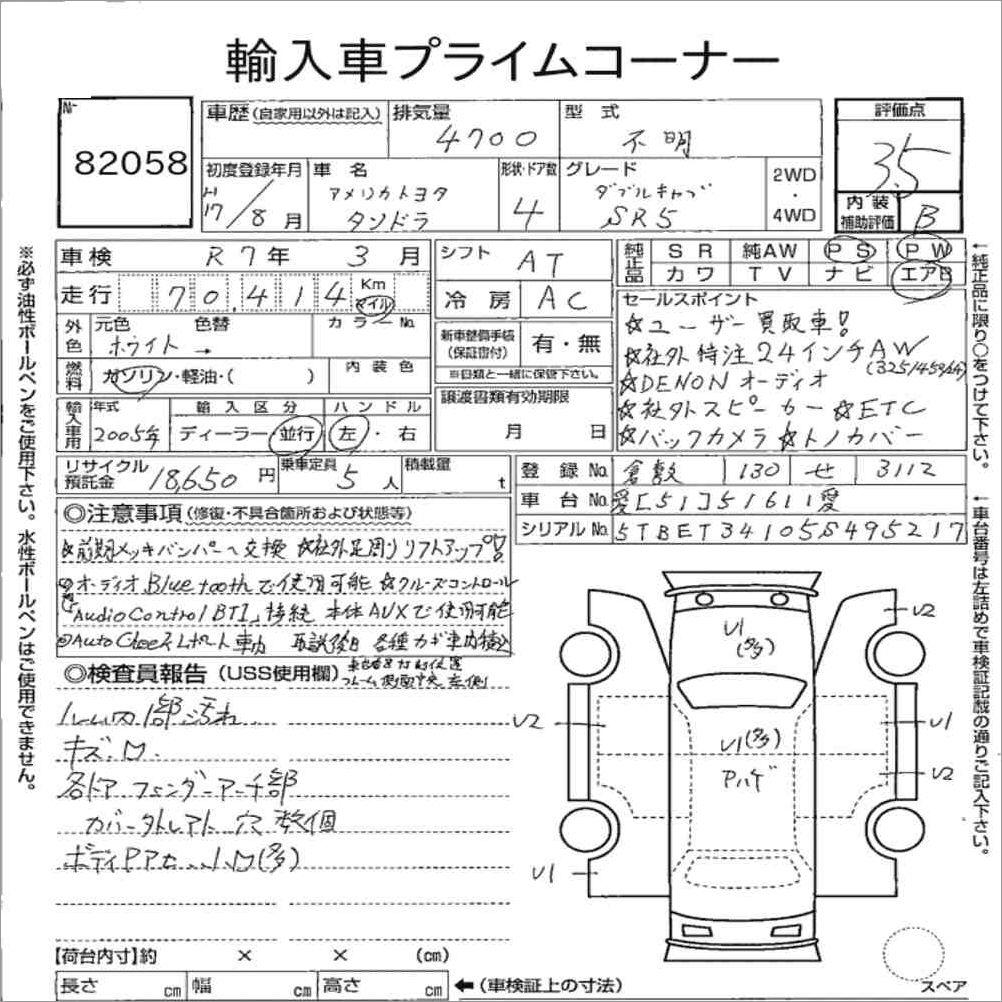 輸入車プライムコーナー
№ 82058
車歴(自家用以外は記入) 排気量 4700 型式 不明 評価点 3.5
初度登録年月 H17/8月 車名 アメリカトヨタ タンドラ 形状・ドア数 4 グレード ダブルキャブ SR5 2WD・4WD 内装補助評価 B
車検 R7年 3月 シフト AT 純正品 SR 純AW PS PW
走行 70,414 Km マイル 冷房 AC カワ TV ナビ エアB
外色 元色 ホワイト → 色替 カラーNo. 新車整備手帳(保証書付) 有・無
※目類と一緒に保管下さい。
セールスポイント
☆ユーザー買取車!
☆社外特注24インチAW
(325/45R24)
☆DENONオーディオ
☆社外スピーカー☆ETC
☆バックカメラ☆トノカバー
燃料 ガソリン・軽油・( ) 内装色
譲渡書類有効期限 月 日
輸入車用 年式 2005年 輸入区分 ディーラー・並行 ハンドル 左・右
リサイクル預託金 18,650円 乗車定員 5人 積載量 t
登録No. 倉敷 130 せ 3112
車台No. 愛[51]51611愛
シリアルNo. 5TBET34105S495217
◎注意事項(修復・不具合箇所および状態等)
☆前期メッキバンパーへ交換 ☆社外足周りリフトアップ!
オーディオBluetoothで使用可能 ☆クルーズコントロール
「Audio Control BT1」接続 本体AUXで使用可能
Auto Checkレポート車内 取説後日 各種カギ車内積込
◎検査員報告(USS使用欄) 車台番号打刻位置
フレーム側面中央左側
ルーム内1部汚れ
キズ.ロ.
各ドアフェンダーアーチ部
カバー外レアト穴数個
ボディPアセ..ロ(多)
U1(多)
U2
U2
U1(多)
Pハゲ
U1
U2
U1
【荷台内寸】約 × × (cm)
長さ cm 幅 cm 高さ cm ←(車検証上の寸法)
スペア
※必ず油性ボールペンをご使用下さい。水性ボールペンはご使用できません。
←純正品に限り○をつけて下さい。
←車台番号は左詰めで車検証記載の通りご記入下さい。